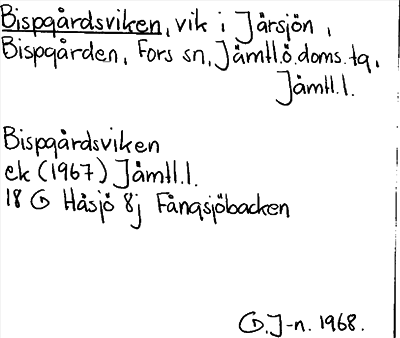 Bispgårdsviken, vik i Järsjön,
Bispgården, Fors sn, Jämtl.ö.doms.tg,
Jämtl.l.
Bispgårdsviken
ek (1967) Jämtl.l.
18 G Håsjö 8j Fångsjöbacken
G.J-n. 1968.